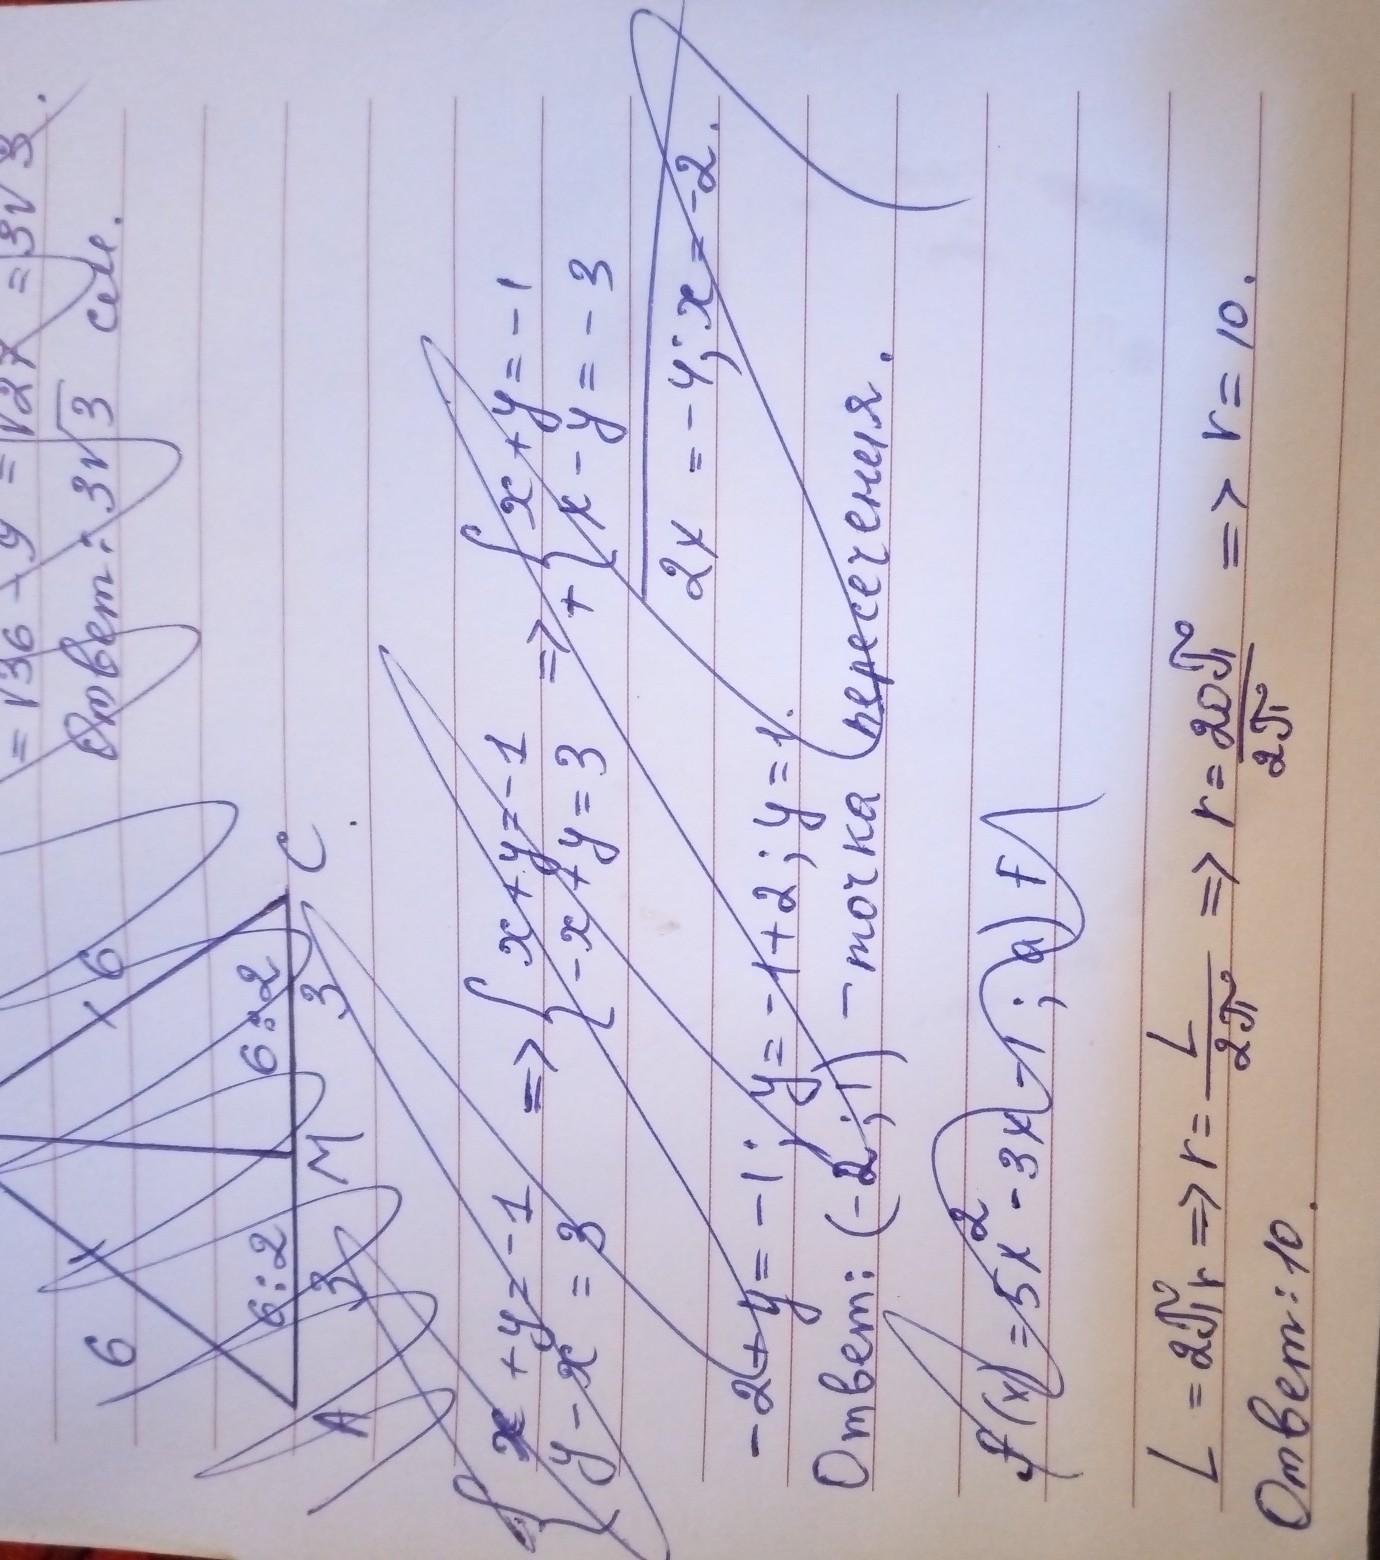 = √36 - 9 = √27 = 3√3.
Ответ: 3√3 см.
6
6
6:2
6:2
A
3
M
3
C
{ x + y = -1 => { x + y = -1 => { x + y = -1
{ y - x = 3 { -x + y = 3 + { x - y = -3
2x = -4; x = -2.
-2 + y = -1; y = -1 + 2; y = 1.
Ответ: (-2; 1) - точка пересечения.
f(x) = 5x² - 3x - 1; a) f
L = 2πr => r = L/2π => r = 20π/2π => r = 10.
Ответ: 10.